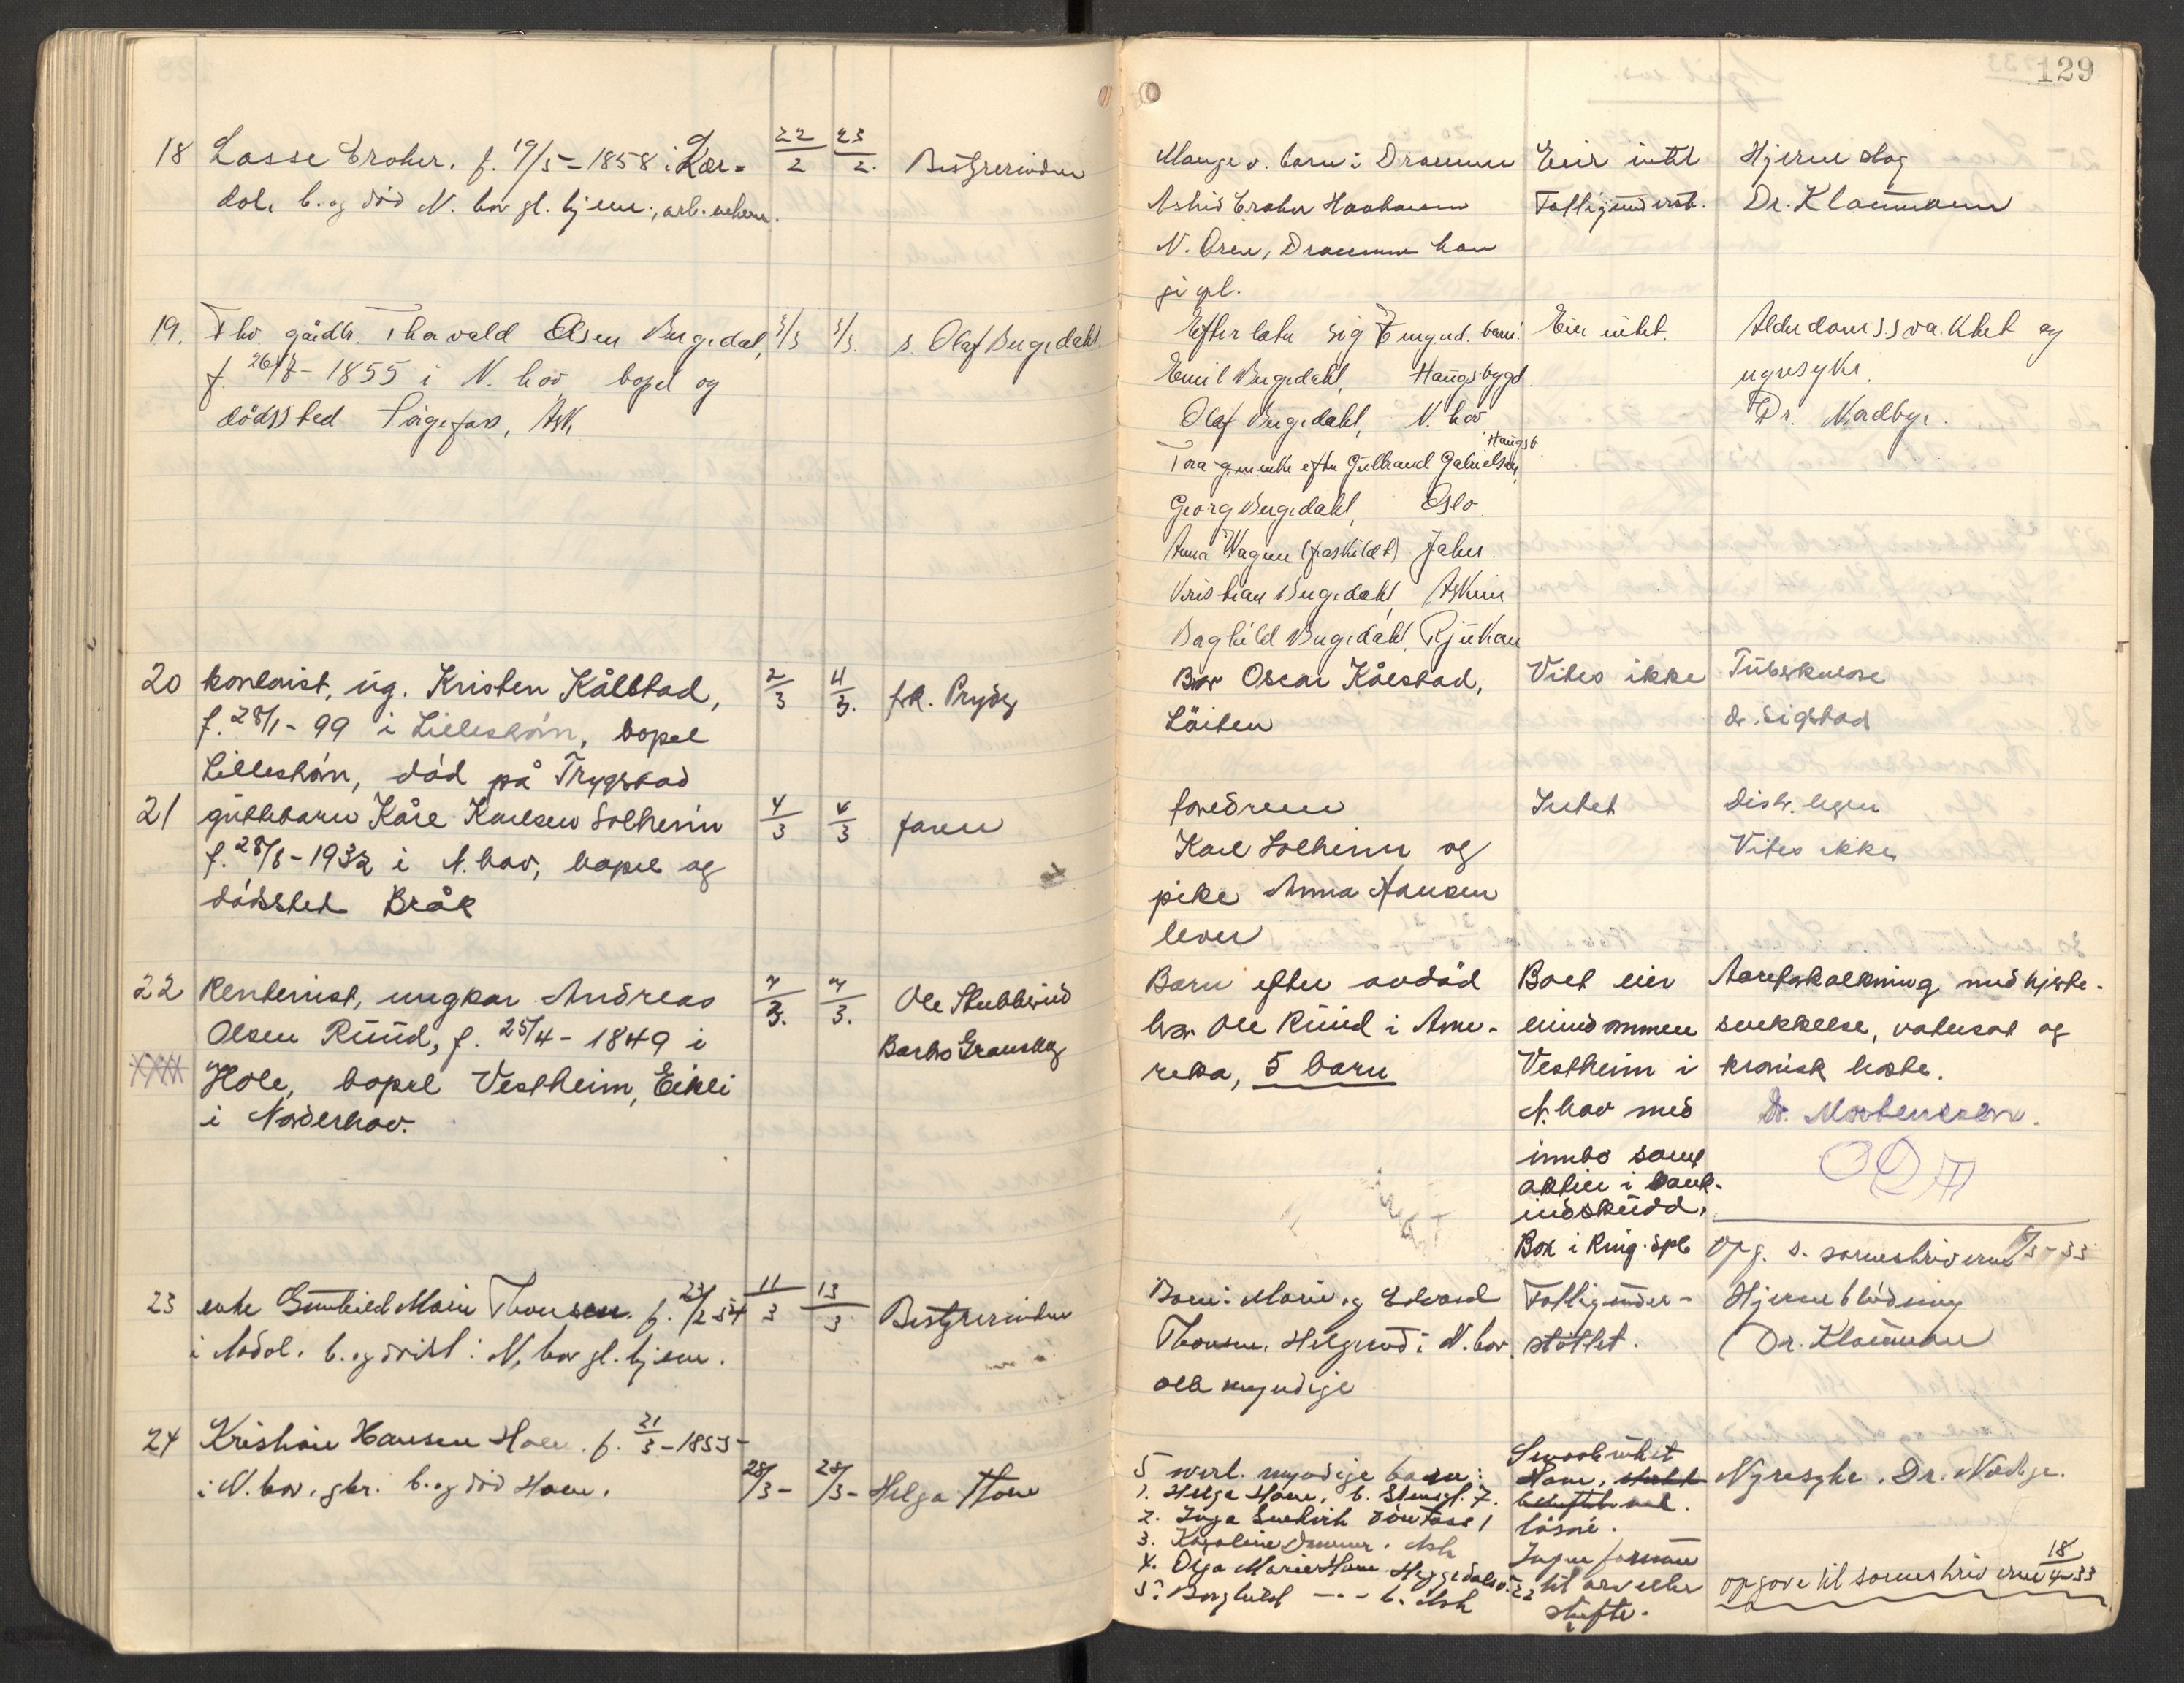 129
18 Lasse Eroher. f. 19/5-1858 i Lær=
dal. b. og död N. hov gl. hjem;, arb. enkem.
22/2 23/2. Bestyrerinden
Mange v. barn i Drammen
Astrid Eroher
N. Øren, Drammen kan
gi opl.
Eier intet
Fattigunderst.
Hjerneslag
Dr. Klaumann
19. Fhv. gårdbr. Thorvald Olsen Bergedal,
f. 26/8-1855 i N. hov bopel og
dödssted Sörgefoss, Ask
3/3 3/3. s. Olaf Bergedahl.
Efterlater sig 7 mynd. barn:
Emil Bergedahl, Haugsbygd
Olaf Bergedahl, N. hov
Tora g.m. enke efter Gulbrand Gabrielsen, Haugsb.
Georg Bergedahl, Oslo.
Anna Wagen (fraskildt) Jahr.
Kristian Bergedahl, Askim
Baghild Bergedahl, Rjukan
Eier intet.
Alderdomssvakhet og
nyresyke.
Dr. Nordbye.
20 kontorist, ug. Kristen Kålstad,
f. 28/1-99 i Lilleström, bopel
Lilleström, död på Trygstad
2/3 4/3. frk. Prydz
Bror Oscar Kålstad,
Löiten
Vites ikke
Tuberkulose
dr. Sigstad
21 guttebarn Kåre Karlsen Solheim
f. 28/8-1932 i N. hov, bopel og
dödssted Bråk
4/3 4/3 faren
foreldrene
Karl Solheim og
pike Anna Hansen
lever
Intet
Distr. legen
Vites ikke
22 Rentenist, ungkar Andreas
Olsen Ruud, f. 25/4-1849 i
Hole, bopel Vestheim, Eikli
i Norderhov.
7/3. 7/3. Ole Stubberud
Barbro Gransberg
Barn efter avdöd
bror Ole Ruud i Ame-
reka, 5 barn
Boet eier
eiendommen
Vestheim i
N. hov med
innbo samt
aktier i bank-
inskudd.
Bok i Ring. Spb
Aaretskalkning med hjerte-
svekkelse, vatersot og
kronisk hoste.
Dr. Mortensen.
Opg. s. sorenskriveren 8/3-33
23 enke Gunhild Marie Thonsen. f. 23/2-54
i Ådal. b. og död i N. hov gl. hjem.
11/3 13/3 Bestyrerinden
Barn: Marie og Edvard
Thonsen, Helgerud i N. hov.
alle myndige
Fattigunder-
støttet.
Hjerneblödning
Dr. Klaumann
24 Kristian Hansen Hoen. f. 21/3-1853-
i N. hov. gbr. b. og död Hoen.
28/3- 28/3- Helga Hoen
5 myndige barn:
1. Helga Hoen, b. Stensgt. 7.
2. Inga
3. Karoline Ask
4. Olga Marie Hoen Heggedalsv. 22
5. Borghild -- - b. Ask
Hoen,
lösöre.
Ingen formue
til arv eller
skifte.
Nyresyke. Dr. Nordbye.
opgave til sorenskriveren 18/4-33